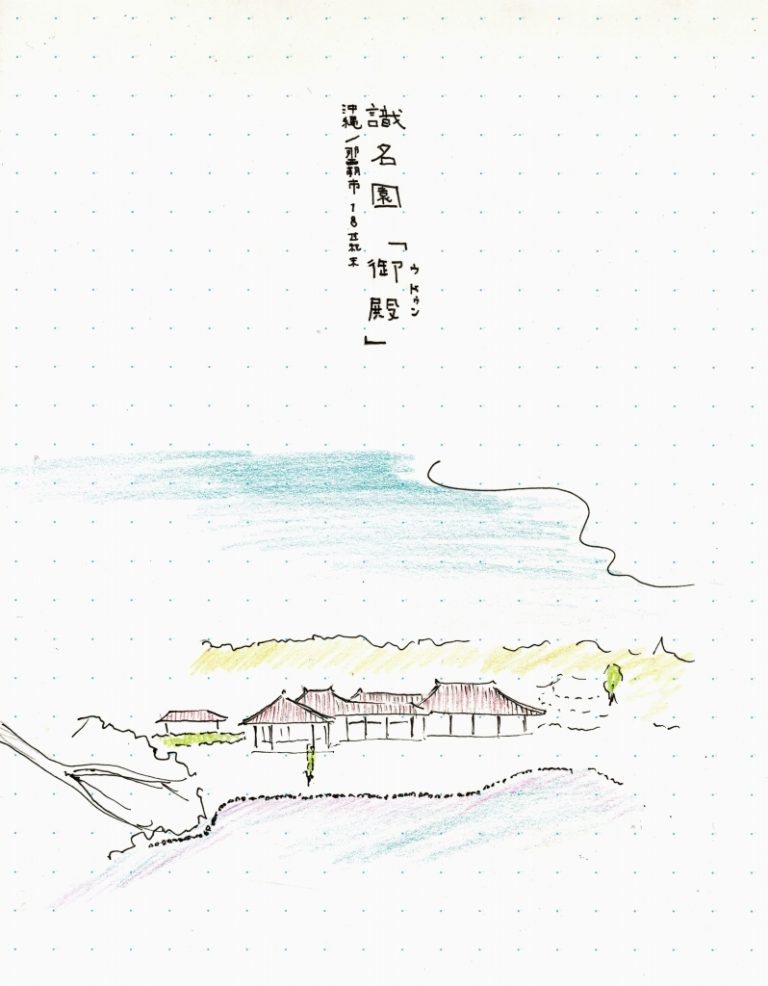 識名園「御殿」
ウドゥン
沖縄/那覇市 18世紀末